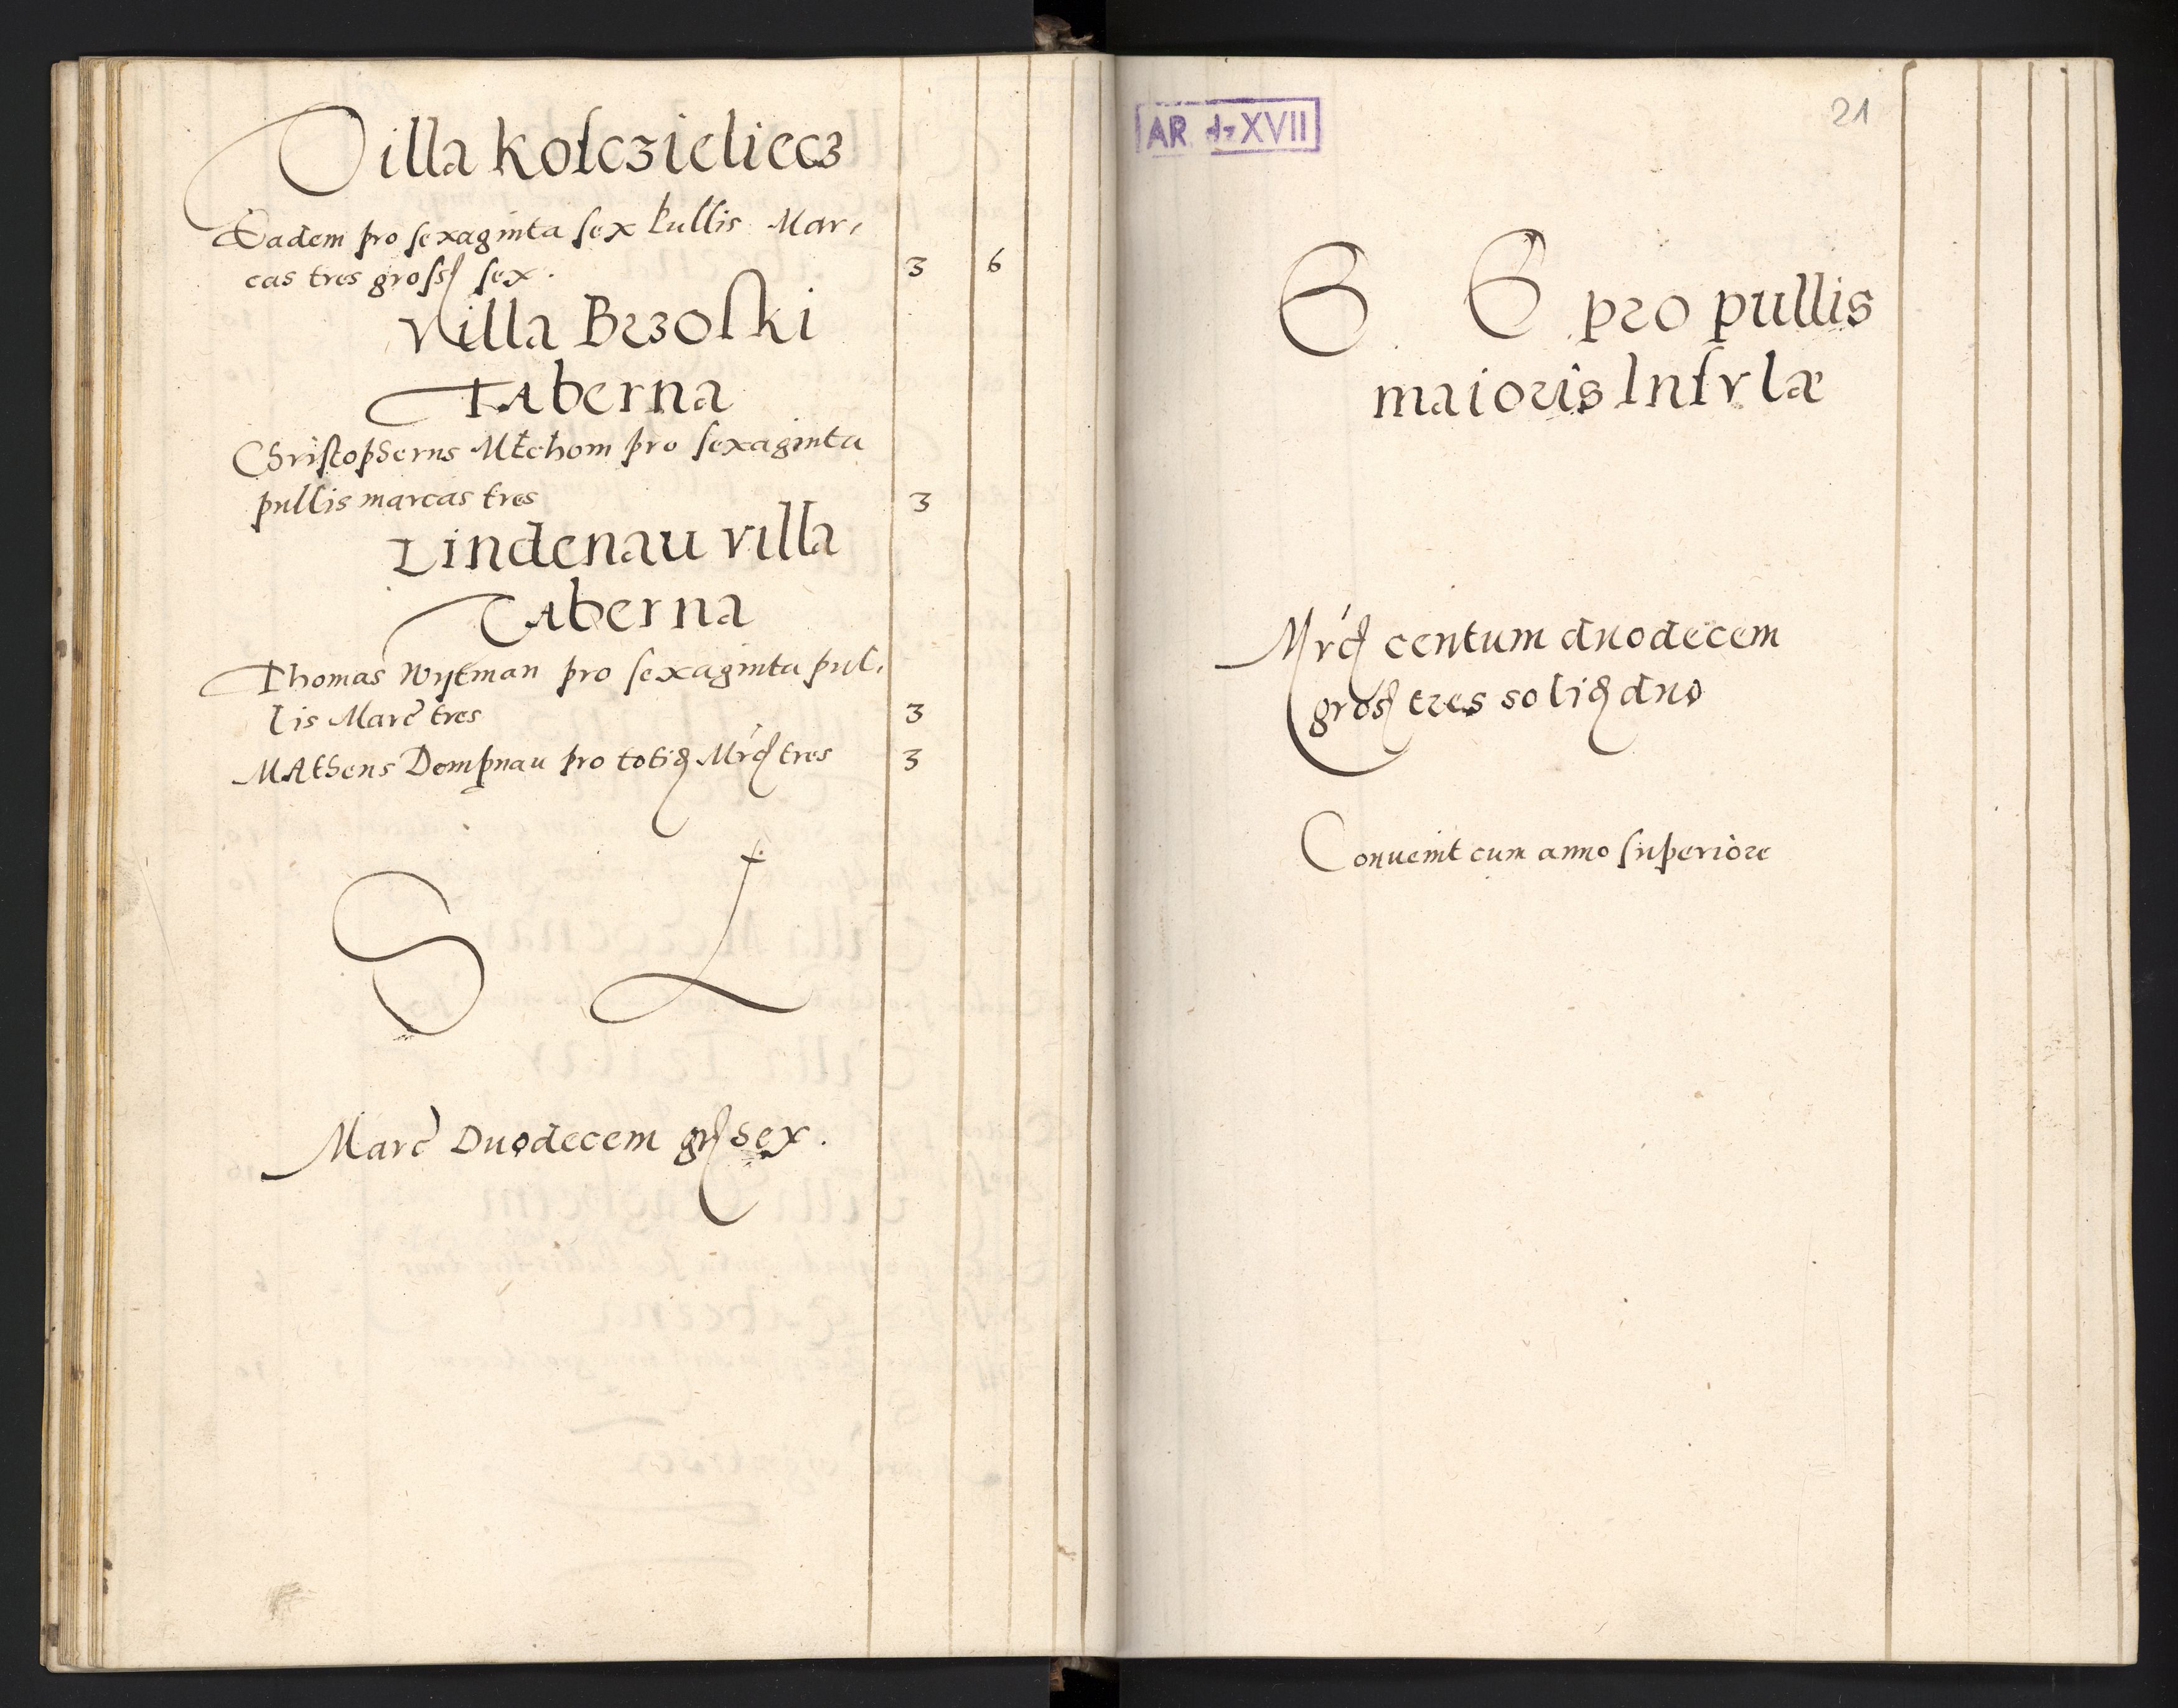 Villa Kosczieliecz
Eadem pro sexaginta sex Pullis Mar,
cas tres gross sex. 3 6
Villa Brzoski
Taberna
Christopherus Mtchom pro sexaginta
pullis marcas tres 3
Lindenau villa
Taberna
Thomas Wytman pro sexaginta pul,
lis Marc tres 3
Matheus Dompnau pro totiꝫ Mrc tres 3
S L
Marc Duodecem gr sex.
AR dz XVII
21
S S pro pullis
maioris Insulæ
Mrc centum duodecem
gros tres soliꝫ duo
Convenit cum anno superiore